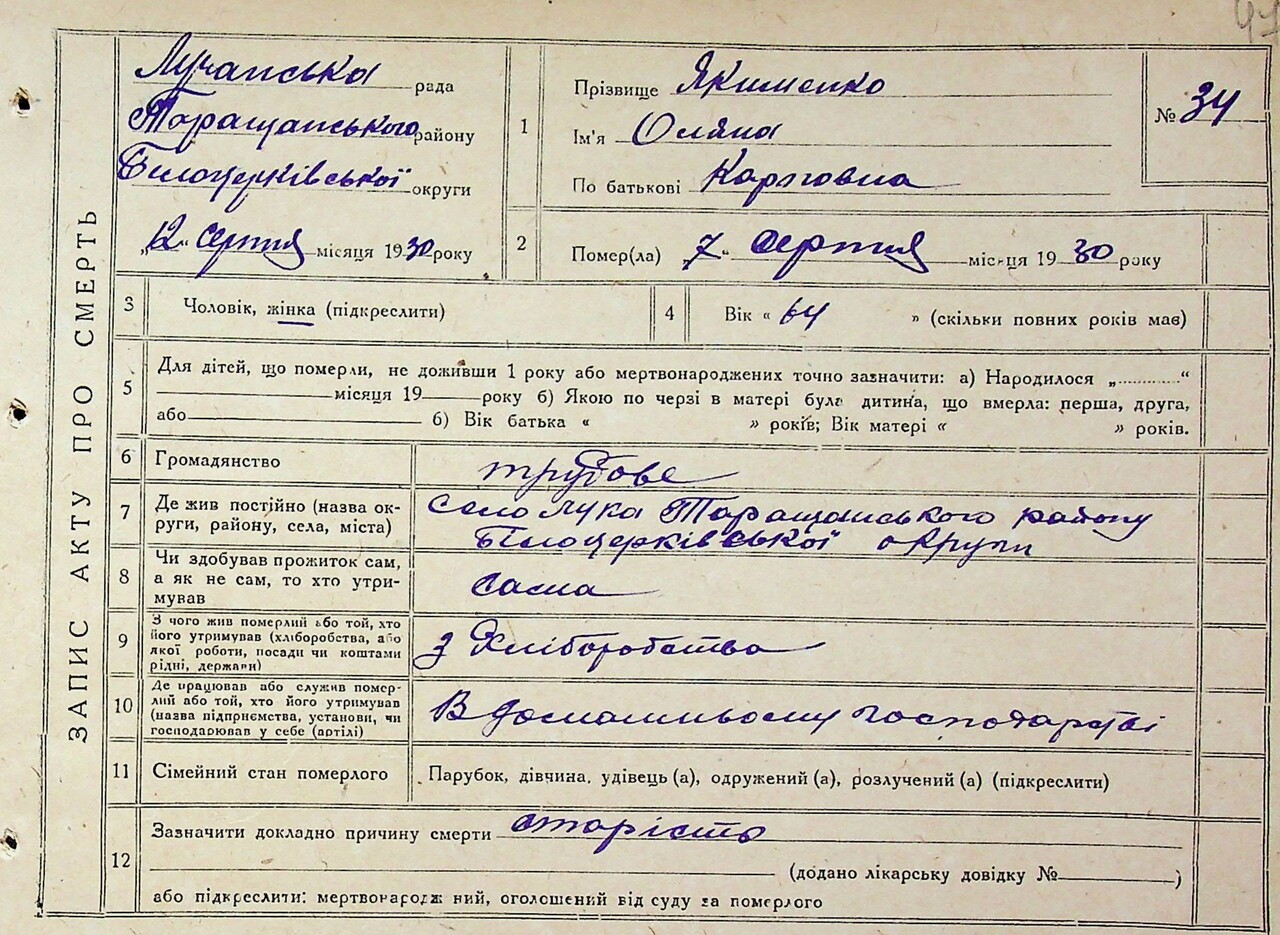 ЗАПИС АКТУ ПРО СМЕРТЬ
Лучанська рада
Таращанського району
Білоцерківської округи
„12“ серпня місяця 1930 року
1
Прізвище Якименко
Ім'я Оляна
По батькові Карповна
№ 34
2
Помер(ла) 7“ серпня місяця 1930 року
3
Чоловік, жінка (підкреслити)
4
Вік « 64 » (скільки повних років мав)
5
Для дітей, що померли, не доживши 1 року або мертвонароджених точно зазначити: а) Народилося „ “
місяця 19 року б) Якою по черзі в матері була дитина, що вмерла: перша, друга,
або б) Вік батька « » років; Вік матері « » років.
6
Громадянство
трудове
7
Де жив постійно (назва ок-
руги, району, села, міста)
село Лука Таращанського району
Білоцерківської округи
8
Чи здобував прожиток сам,
а як не сам, то хто утри-
мував
сама
9
З чого жив померлий або той, хто
його утримував (хліборобства, або
якої роботи, посади чи коштами
рідні, держави)
з Хліборобства
10
Де працював або служив помер-
лий або той, хто його утримував
(назва підприємства, установи, чи
господарював у себе (артілі)
В домашньому господарстві
11
Сімейний стан померлого
Парубок, дівчина, удівець (а), одружений (а), розлучений (а) (підкреслити)
12
Зазначити докладно причину смерти старість
(додано лікарську довідку № )
або підкреслити: мертвонародж ний, оголошений від суду за померлого